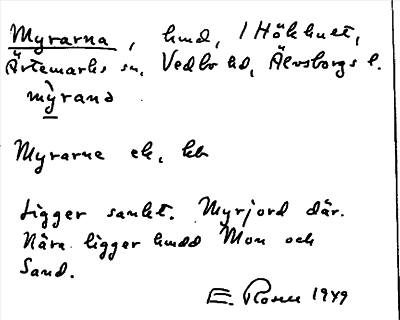 Myrarna, hmd, i Hökhult,
Ärtemarks sn, Vedbo hd, Älvsborgs l.
mỳrana
Myrarne ek, kb
Ligger sankt. Myrjord där.
Nära ligger hmdd Mon och
Sand.
E. Rosen 1949